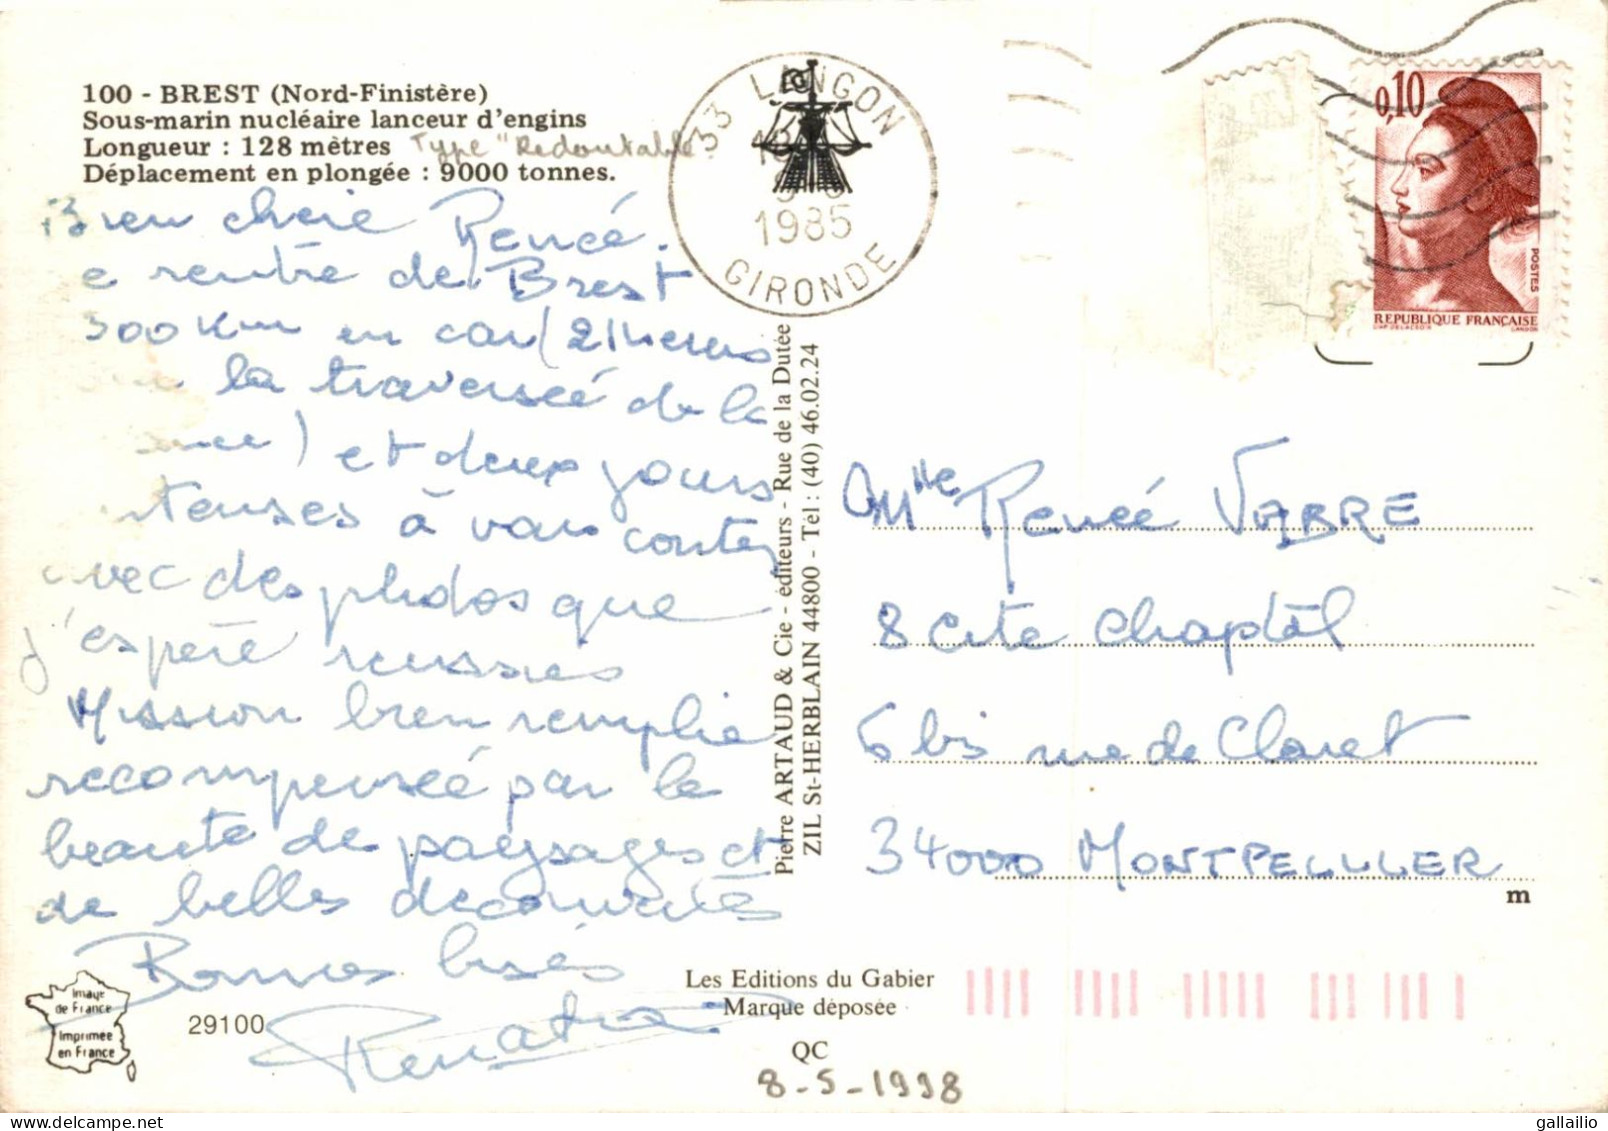 100 - BREST (Nord-Finistère)
Sous-marin nucléaire lanceur d'engins
Longueur : 128 mètres Type "Redoutable
Déplacement en plongée : 9000 tonnes.
Bien chere Renée.
e rentre de Brest
300 Km en car (21 heures
la traversée de la
) et deux jours
tenses à vous contez
avec des photos que
j'espère reussies
Mission bien remplie
recompensée par la
beauté de paysages et
de belles decouvertes
Bonnes bises
33 LANGON
1985
GIRONDE
0,10
POSTES
REPUBLIQUE FRANÇAISE
Pierre ARTAUD & Cie - éditeurs - Rue de la Dutée
ZIL St-HERBLAIN 44800 - Tél : (40) 46.02.24
Mlle Renée VABRE
8 Cite Chaptal
6 bis rue de Claret
34000 MONTPELLIER
m
Image
de France
Imprimée
en France
29100
Les Editions du Gabier
Marque déposée
QC
8-5-1998
gallailio